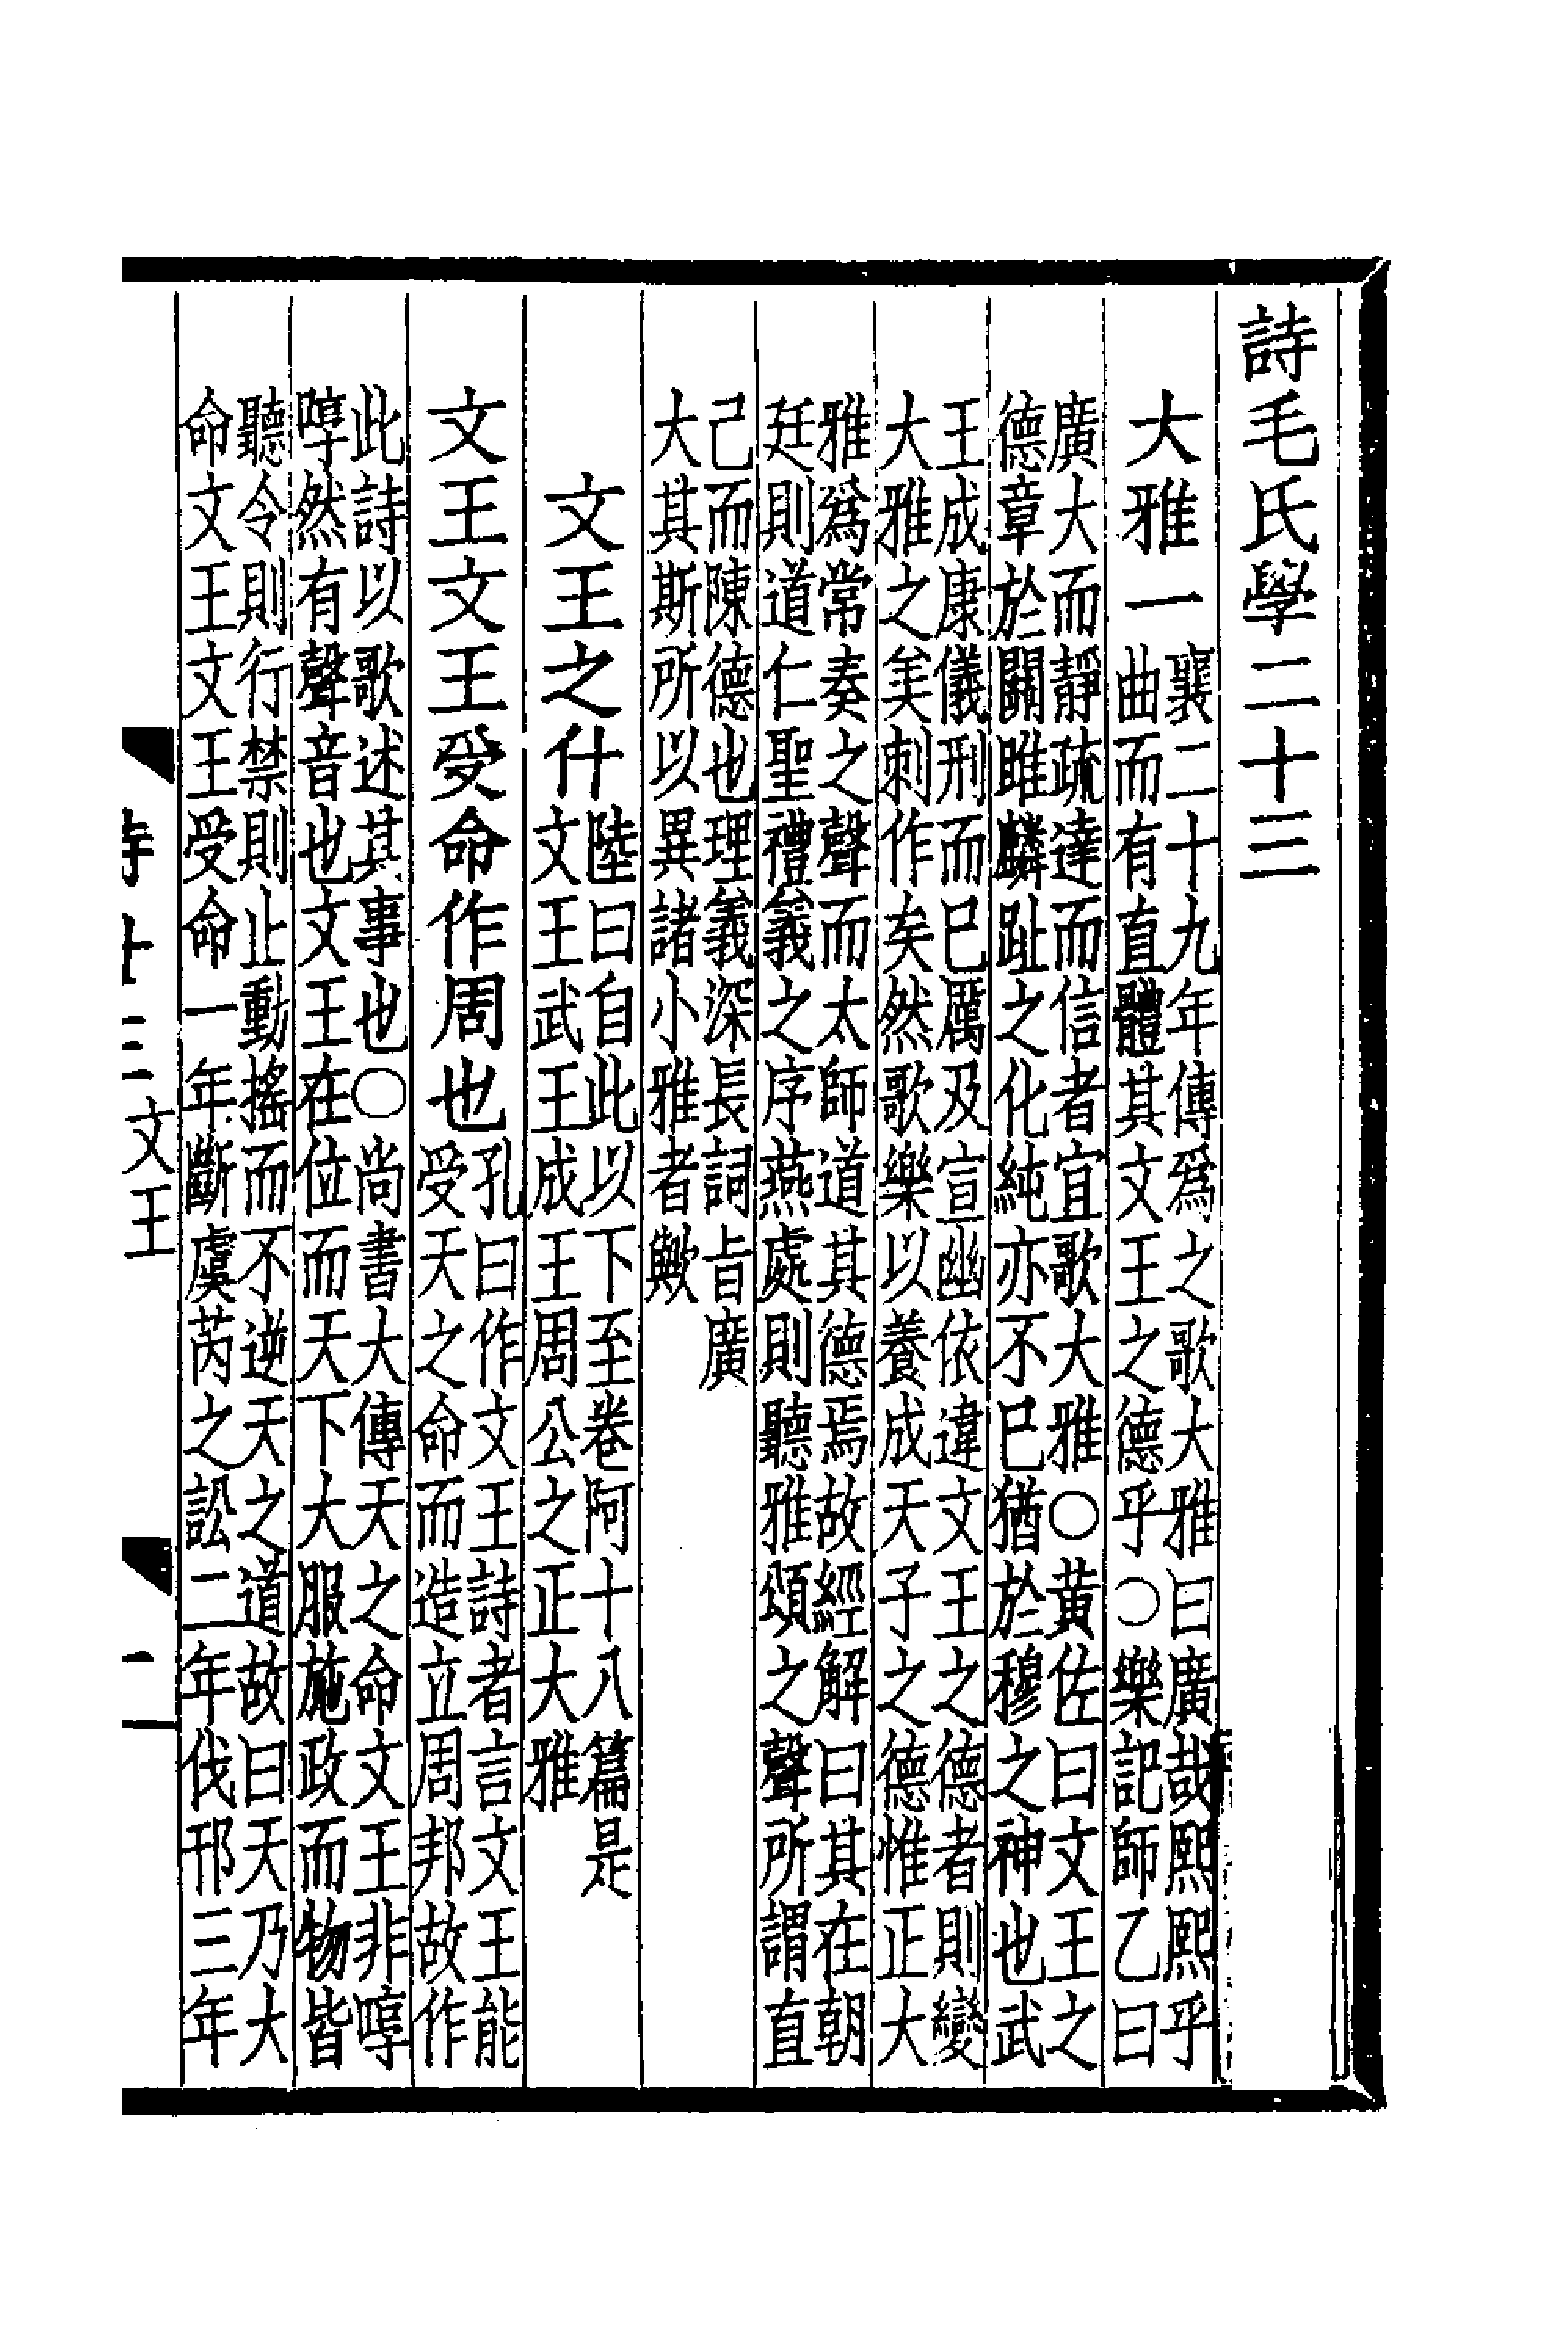 詩毛氏學二十三
大雅一
襄二十九年傳爲之歌大雅曰廣哉熙熙乎
曲而有直體其文王之德乎○樂記師乙曰
廣大而靜疏達而信者宜歌大雅○黃佐曰文王之
德章於關雎麟趾之化純亦不已猶於穆之神也武
王成康儀刑而已厲及宣幽依違文王之德者則變
大雅之美刺作矣然歌樂以養成天子之德惟正大
雅爲常奏之聲而太師道其德焉故經解曰其在朝
廷則道仁聖禮義之序燕處則聽雅頌之聲所謂直
己而陳德也理義深長詞旨廣
大其斯所以異諸小雅者歟
文王之什
陸曰自此以下至卷阿十八篇是
文王武王成王周公之正大雅
文王文王受命作周也
孔曰作文王詩者言文王能
受天之命而造立周邦故作
此詩以歌述其事也○尚書大傳天之命文王非啍
啍然有聲音也文王在位而天下大服施政而物皆
聽令則行禁則止動搖而不逆天之道故曰天乃大
命文王文王受命一年斷虞芮之訟二年伐邘三年
文王